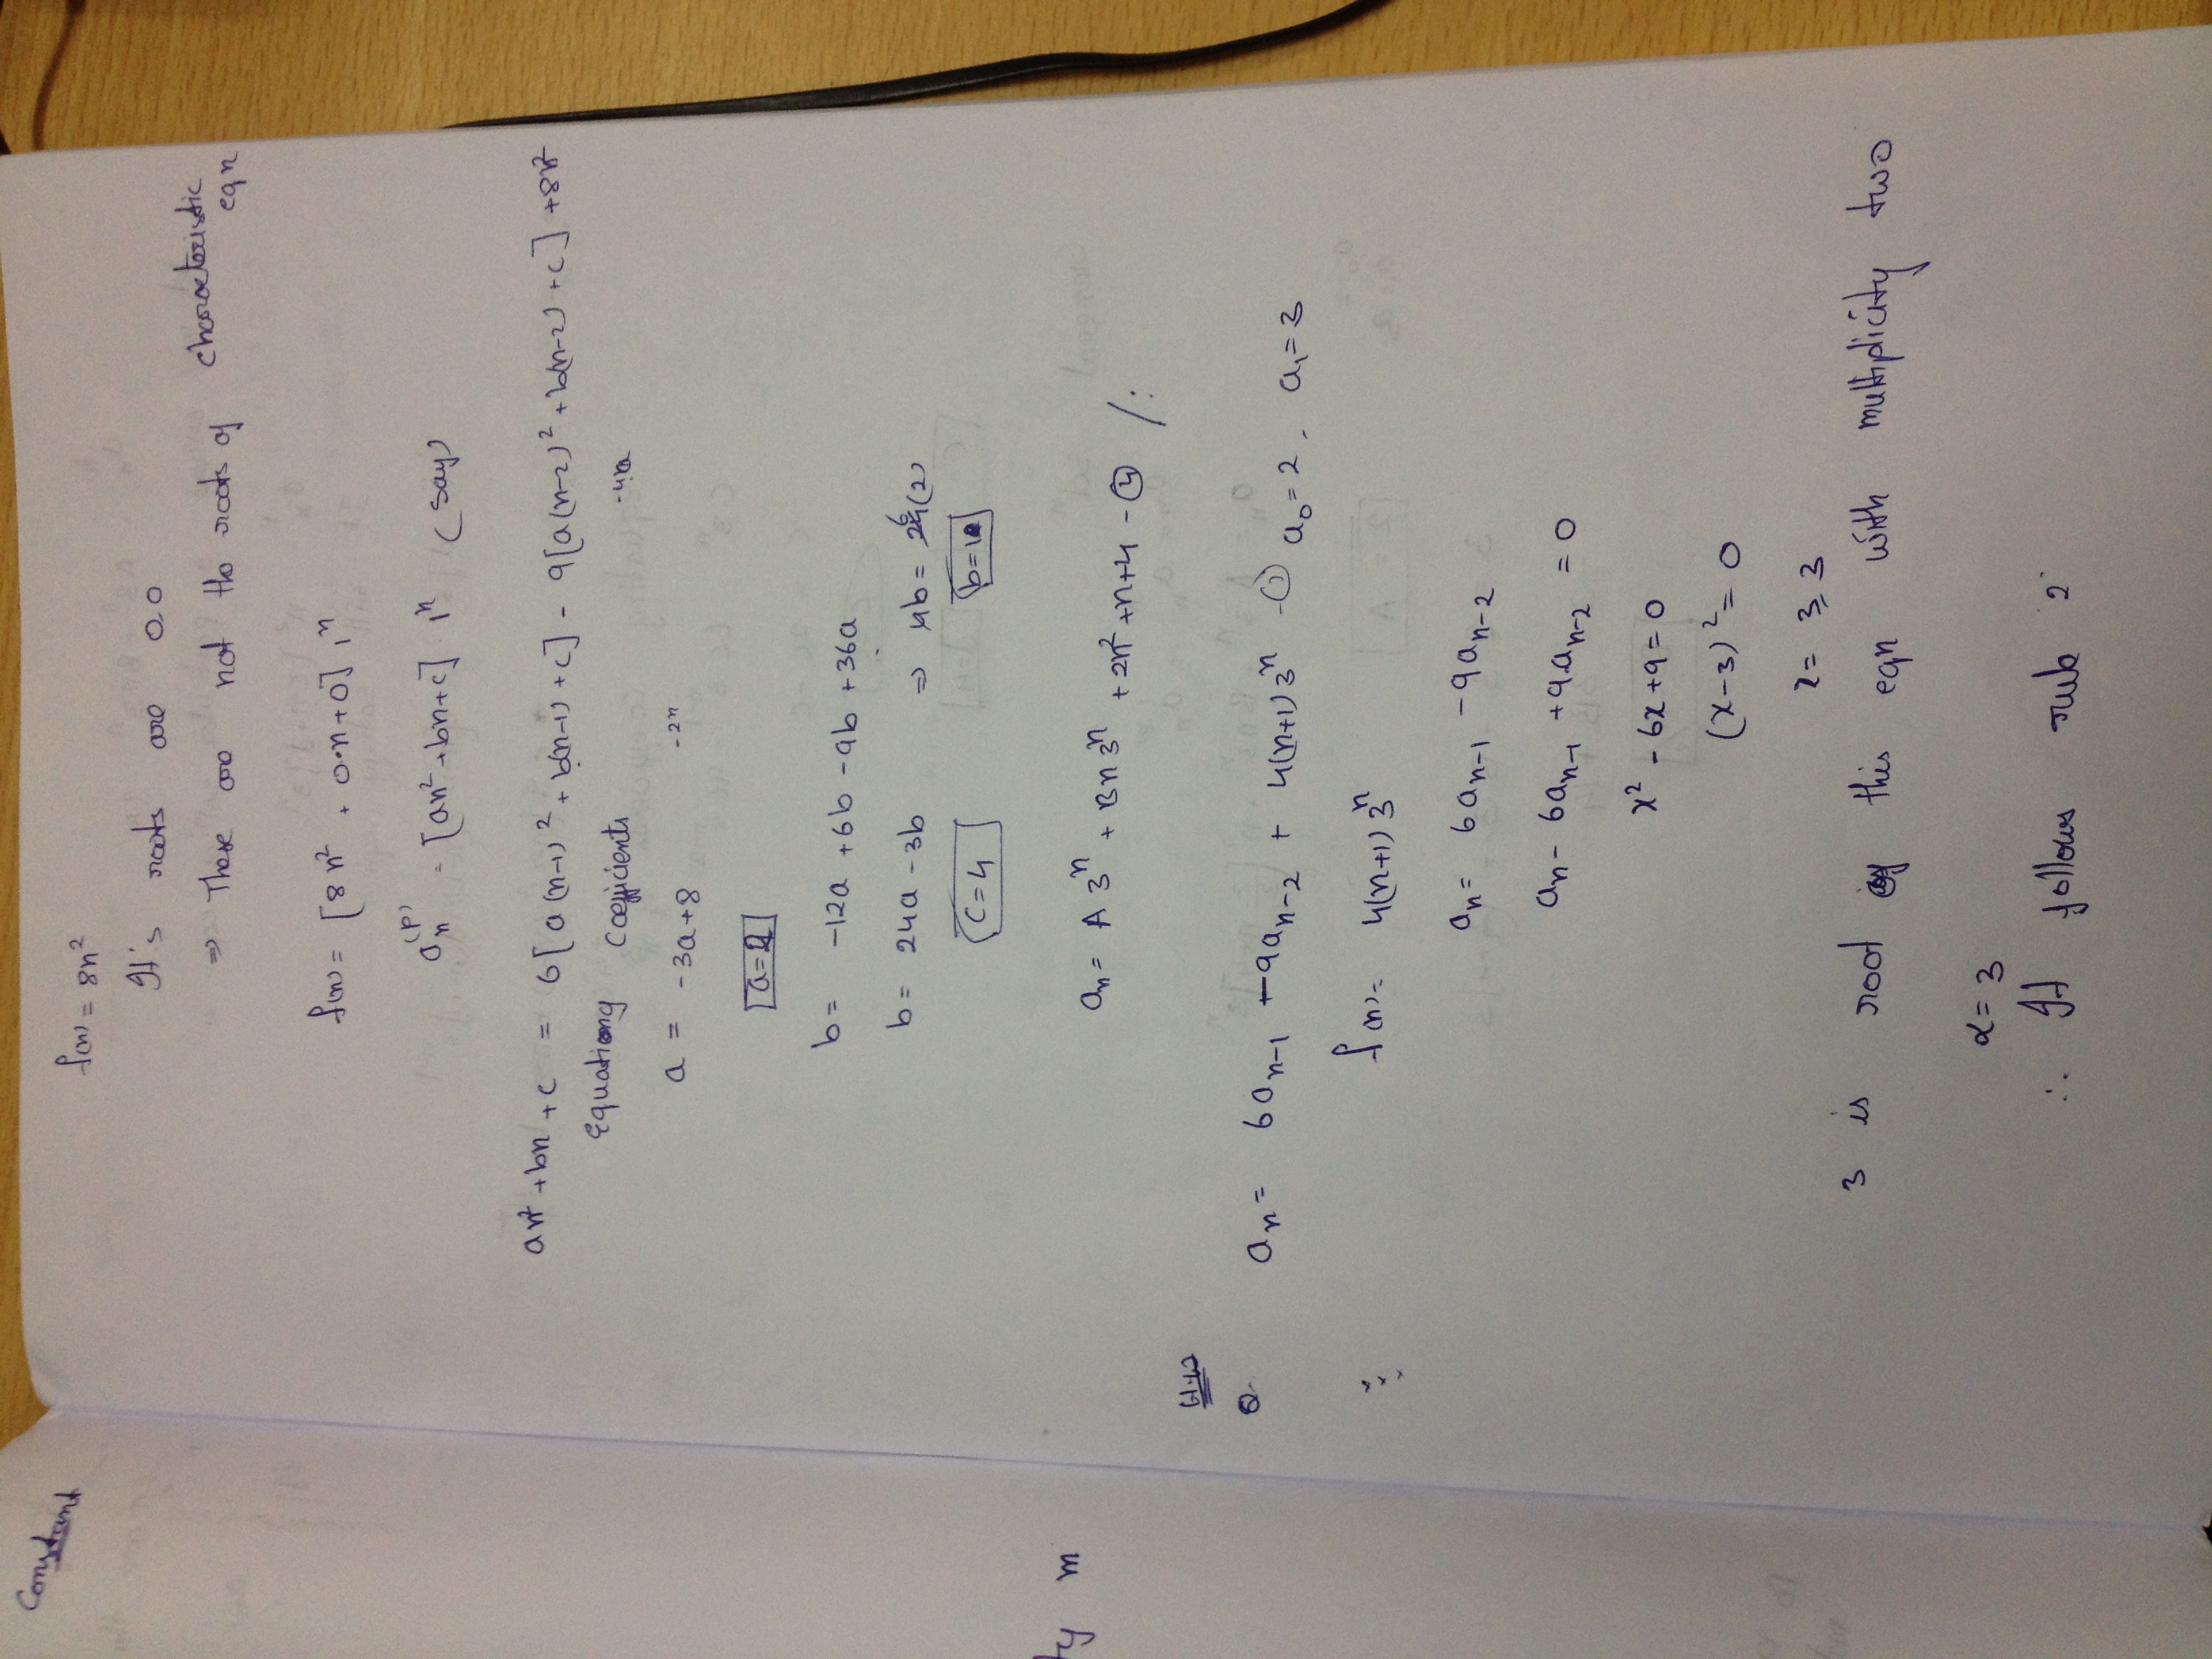 Constant
ty m
f(n) = 8n²
It's roots are 0,0
⇒ These are not the roots of characteristic eqn
f(n) = [8n² + 0.n+0] 1ⁿ
aₙ⁽ᵖ⁾ = [an²+bn+c] 1ⁿ (say)
an² + bn + c = 6[a(n-1)² + b(n-1) + c] - 9[a(n-2)² + b(n-2) + c] + 8n²
Equating Coefficients
-4na
a = -3a+8
-2n
a=2
b = -12a + 6b - 9b + 36a
b = 24a - 3b ⇒ 4b = 24(2)
c=4
aₙ = A3ⁿ + Bn3ⁿ + 2n² + n + 4 - (4) /.
H.W
Q. aₙ = 6aₙ₋₁ - 9aₙ₋₂ + 4(n+1)3ⁿ - (1) a₀ = 2, a₁ = 3
f(n) = 4(n+1)3ⁿ
aₙ = 6aₙ₋₁ - 9aₙ₋₂
aₙ - 6aₙ₋₁ + 9aₙ₋₂ = 0
x² - 6x + 9 = 0
(x-3)² = 0
= 3, 3
3 is root of this eqn with multiplicity two
α = 3
∴ It follows rule 2.